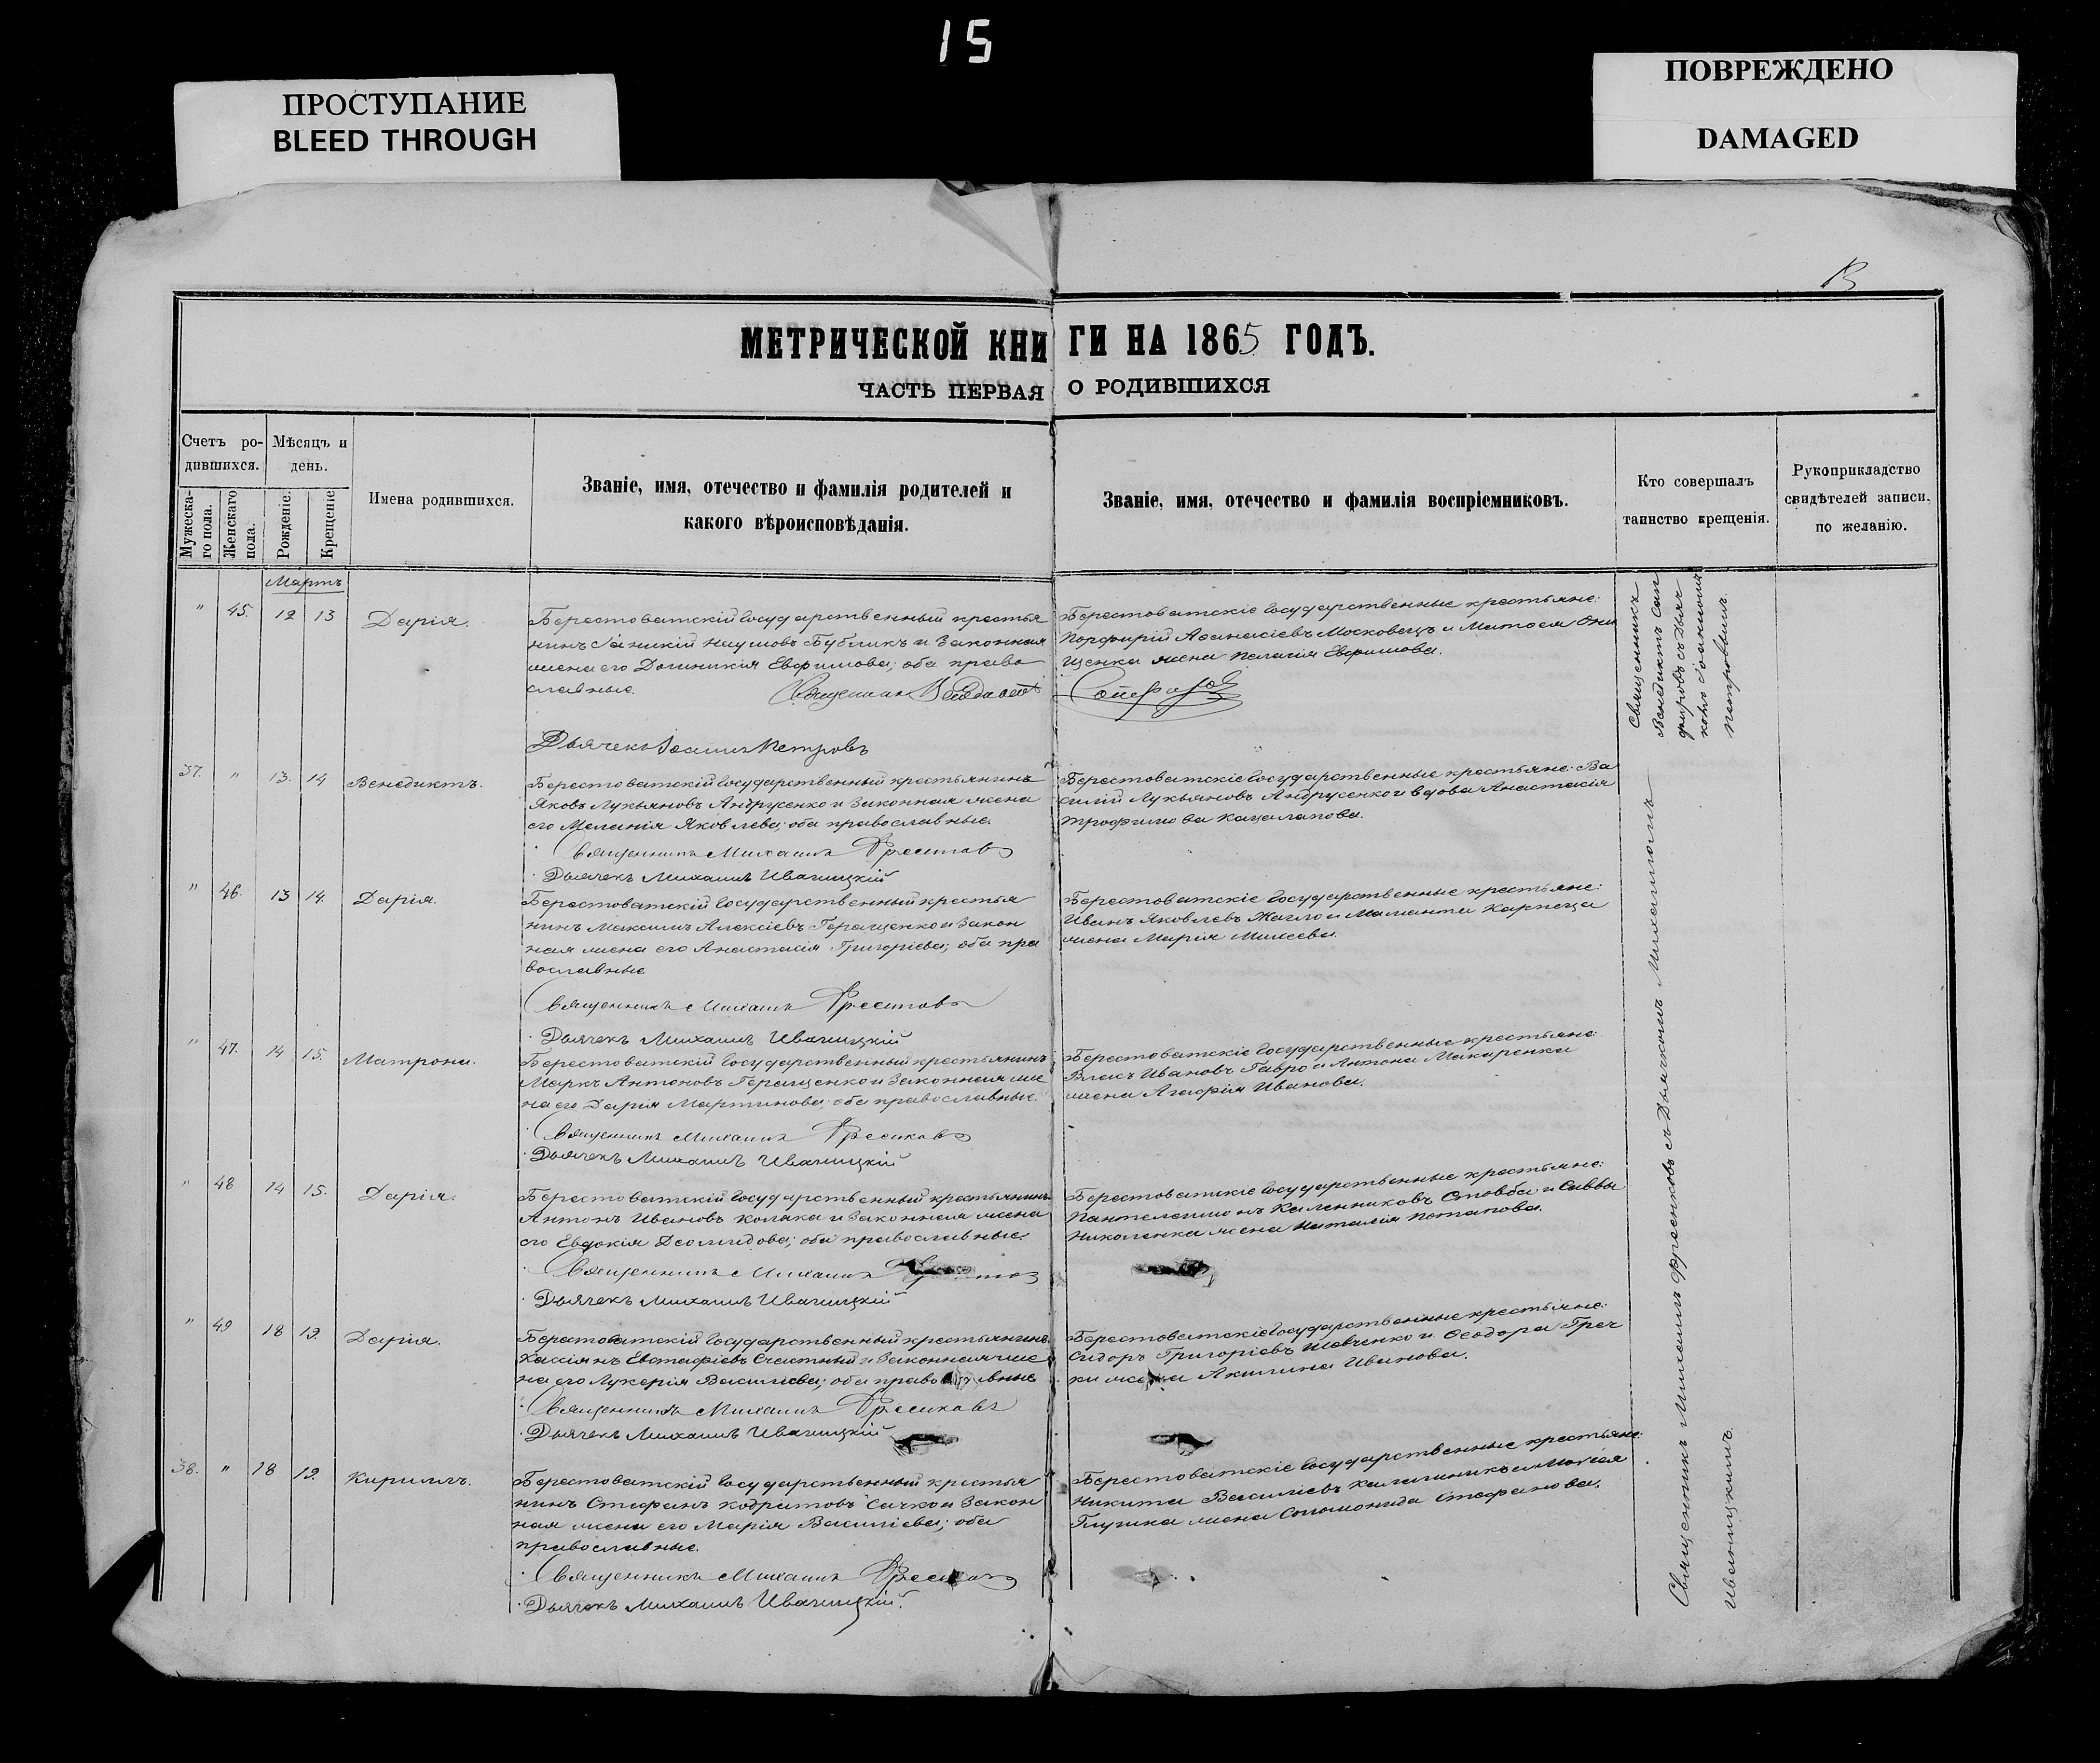 15
ПРОСТУПАНИЕ
BLEED THROUGH
ПОВРЕЖДЕНО
DAMAGED
МЕТРИЧЕСКОЙ КНИГИ НА 1865 ГОДЪ.
ЧАСТЬ ПЕРВАЯ О РОДИВШИХСЯ
Счетъ ро-
дившихся.
Мужеска-
го пола.
Женскаго
пола.
Мѣсяцъ и
день.
Рожденіе.
Крещеніе
Имена родившихся.
Званіе, имя, отечество и фамилія родителей и
какого вѣроисповѣданія.
Званіе, имя, отечество и фамилія воспріемниковъ.
Кто совершалъ
таинство крещенія.
Рукоприкладство
свидѣтелей записи.
по желанію.
Мартъ
" 45. 12 13 Дарія.
Берестоватскій Государственный крестья
нинъ Іаникій Наумовъ Бубликъ и законная
жена его Домникія Евфимова; оба право
славные.
Дьячекъ Іоаннъ Петровъ
Берестоватскіе Государственные крестьяне:
Порфирій Аѳанасіевъ Московецъ и Матѳея Они
щенка жена Пелагія Евфимова.
Священникъ
Венедиктъ
съ дьяч
комъ Іоанномъ
Петровымъ.
37. " 13. 14 Венедиктъ.
Берестоватскій Государственный крестьянинъ
Яковъ Лукьяновъ Андрусенко и законная жена
его Меланія Яковлева; оба православные.
Священникъ Михаилъ
Дьячекъ Михаилъ Иваницкій
Берестоватскіе Государственные крестьяне: Ва
силій Лукьяновъ Андрусенко и вдова Анастасія
Трофимова Кацалапова.
" 46. 13 14. Дарія.
Берестоватскій Государственный крестья
нинъ Максимъ Алексіевъ Геращенко и закон
ная жена его Анастасія Григоріева; оба пра
вославные
Священникъ Михаилъ
Дьячекъ Михаилъ Иваницкій
Берестоватскіе Государственные крестьяне:
Иванъ Яковлевъ Жагло и Маманта Карпеца
жена Марія Михеева.
" 47. 14 15. Матрона.
Берестоватскій Государственный крестьянинъ
Маркъ Антоновъ Геращенко и законная же
на его Дарія Мартинова; оба православные.
Священникъ Михаилъ
Дьячекъ Михаилъ Иваницкій
Берестоватскіе Государственные крестьяне:
Власъ Ивановъ Гавро и Антона Макаренка
жена Агафія Иванова.
" 48 14 15. Дарія.
Берестоватскій Государственный крестьянинъ
Антонъ Ивановъ Колака и законная жена
его Евдокія Деомидова; оба православные.
Священникъ Михаилъ
Дьячекъ Михаилъ Иваницкій
Берестоватскіе Государственные крестьяне:
Пантелеимонъ Каленниковъ Стовба и Саввы
Николенка жена Наталія Потапова.
" 49 18 19. Дарія.
Берестоватскій Государственный крестьянинъ
Касіянъ Евстафіевъ Счастный и законная же
на его Лукерія Василіева; оба право вные
Священникъ Михаилъ
Дьячекъ Михаилъ Иваницкій
Берестоватскіе Государственные крестьяне:
Сидоръ Григоріевъ Шевченко и Ѳеодора Греч
ки жена Акилина Иванова.
38. " 18 19. Кириллъ.
Берестоватскій Государственный крестья
нинъ Стефанъ Кодратовъ Сачко и закон
ная жена его Марія Василіева; оба
православные.
Священникъ Михаилъ
Дьячекъ Михаилъ Иваницкій.
Берестоватскіе Государственные крестьяне:
Никита Василіевъ Калиникъ и
жена Соломонида Стефанова.
Священникъ Михаилъ съ Дьячкомъ Михаиломъ
Иваницкимъ.